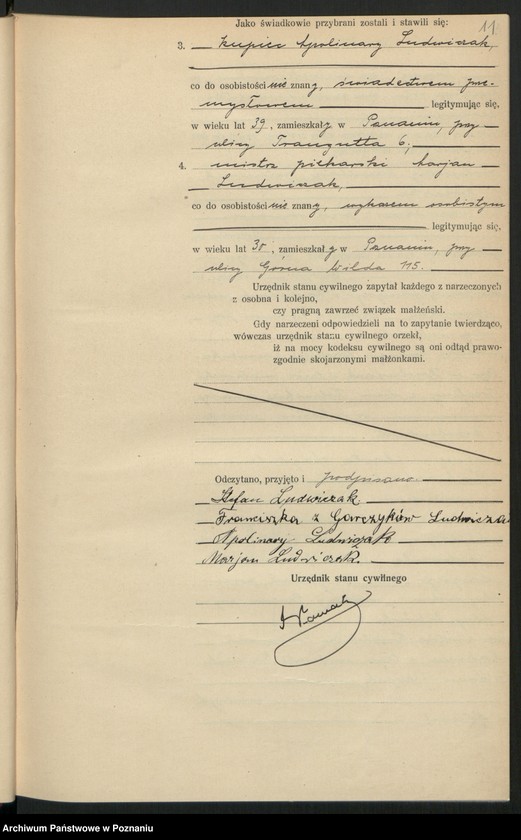 11
Jako świadkowie przybrani zostali i stawili się:
3. kupiec Apolinary Ludwiczak,
co do osobistości nie znany, świadectwem prze-
mysłowem legitymując się,
w wieku lat 39, zamieszkały w Poznaniu, przy
ulicy Traugutta 6,
4. mistrz piekarski Marjan
Ludwiczak,
co do osobistości nie znany, wykazem osobistym
legitymując się,
w wieku lat 30, zamieszkały w Poznaniu, przy
ulicy Górna Wilda 115.
Urzędnik stanu cywilnego zapytał każdego z narzeczonych
z osobna i kolejno,
czy pragną zawrzeć związek małżeński.
Gdy narzeczeni odpowiedzieli na to zapytanie twierdząco,
wówczas urzędnik stanu cywilnego orzekł,
iż na mocy kodeksu cywilnego są oni odtąd prawo-
zgodnie skojarzonymi małżonkami.
Odczytano, przyjęto i podpisano.
Stefan Ludwiczak
Franciszka z Garczyków Ludwicza
Apolinary Ludwiczak
Marjan Ludwiczak.
Urzędnik stanu cywilnego
Archiwum Państwowe w Poznaniu